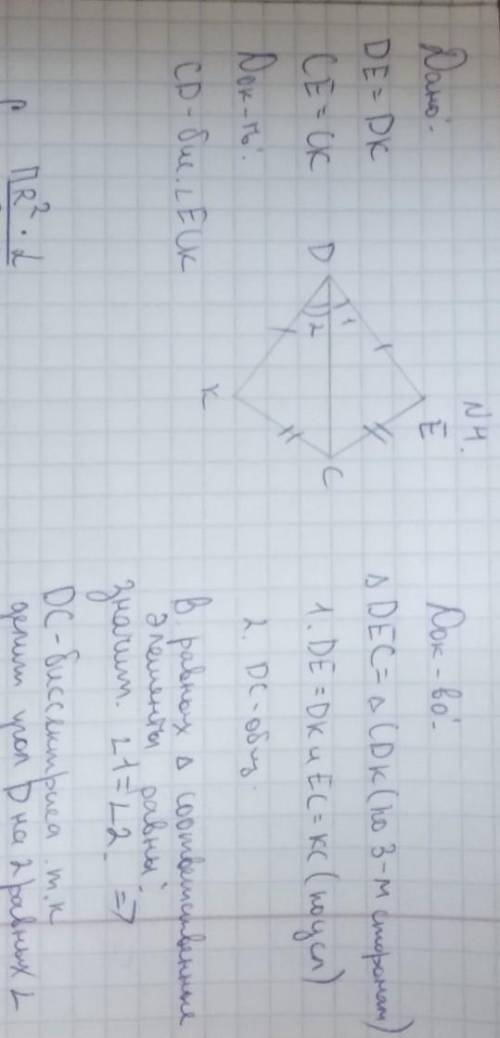 N4.
Дано:
DE = DK
CE = CK
Док-ть:
CD - бис. ∠ECK
D
1
2
E
K
C
Док-во:
△ DEC = △ CDK (по 3-м сторонам)
1. DE = DK и EC = KC (по усл)
2. DC - общ.
В равных △ соответственные
элементы равны.
Значит. ∠1 = ∠2. =>
DC - биссектриса т.к
делит угол D на 2 равных ∠
ПR² · L